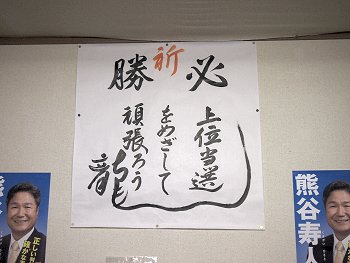 祈
必勝
上位当選
をめざして
頑張ろう
熊谷寿人
正しい判
確かな